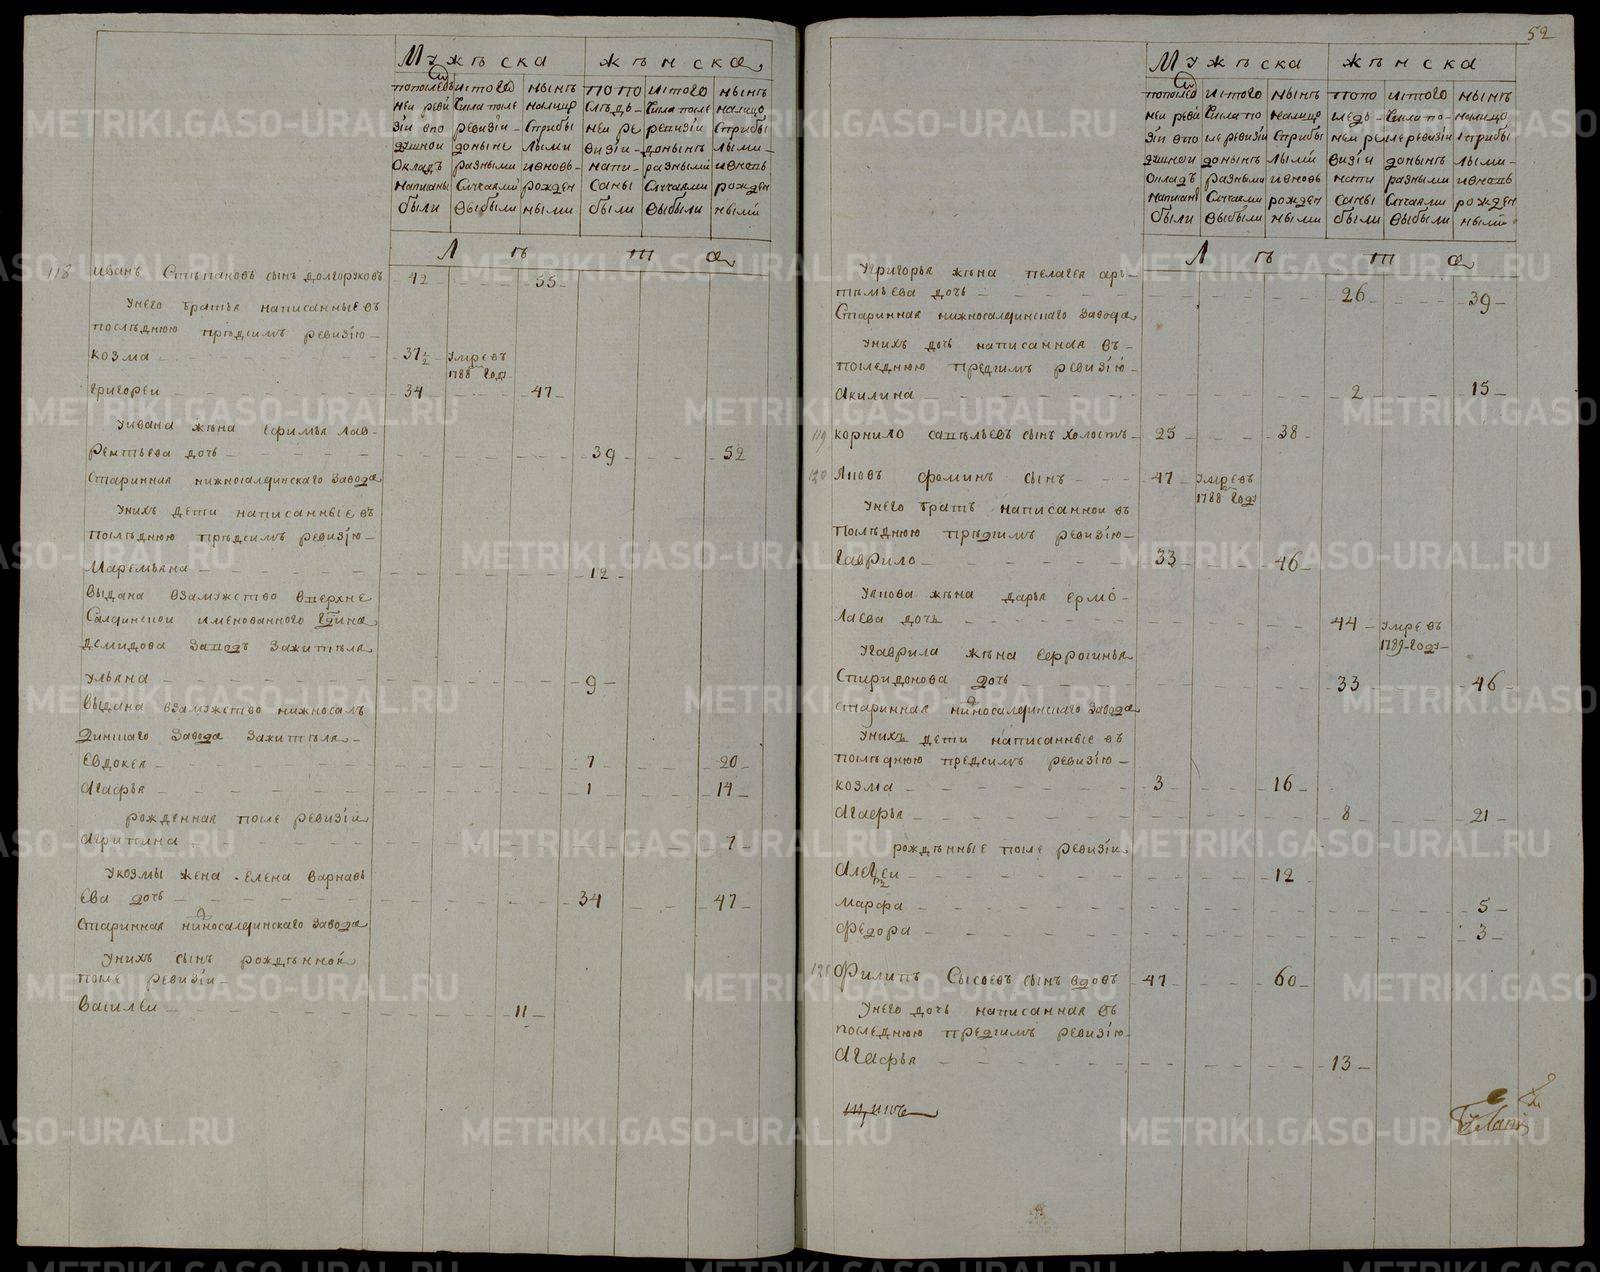 52
Мужъска
жѣнска
попослѣд
ней реви
зіи впо
душной
окладъ
написаны
были
изтого
Числа после
ревизіи
доныне
разными
Случаями
выбыли
нынѣ
налицо
Сприбы
лыми
ивновь
рожден
ными
попо
слѣдь
ней ре
визіи
напи
саны
были
изтого
Числа после
ревизіи
донынѣ
разными
Случаями
выбыли
нынѣ
налицо
Сприбы
лыми
ивновь
рожден
ными
Лѣта
118 иванъ Стѣпановъ сынъ долгоруковъ 42 55
Унего братья написанные въ
послѣднюю прѣдсимъ ревизію
козма 37½ умре въ
1788 году
григореи 34 47
Уивана жѣна ефимья лав
рентьева дочь 39 52
Старинная нижносалдинскаго завода
Унихъ дети написанные въ
послѣднюю прѣдсимъ ревизію
Маремьяна 12
выдана взамужство вверхне
Салдинской именованного Гдина
демидова заводъ зажителя
ульяна 9
выдана взамужство нижносал
динскаго завода зажитѣля
Евдокея 7 20
агафья 1 14
рожденная после ревизіи
агрипина 7
Укозмы жена елена варнавь
ева дочь 34 47
старинная нижносалдинскаго завода
Унихъ сынъ рождѣнной
после ревизіи
василеи 11
Мужъска
жѣнска
попослед
ней реви
зіи впо
душной
окладъ
написаны
были
изтого
Числа по
сле ревизіи
донынѣ
разными
Случаями
выбыли
нынѣ
налицо
Сприбы
лыми
ивновь
рожден
ными
Лѣта
Угригорья жѣна пелагея арь
тѣмьева дочь 26 39
Старинная нижносалдинскаго завода
Унихъ дочь написанная въ
последнюю предсимъ ревизію
акилина 2 15
119 корнило савѣльевъ сынъ холостъ 25 38
120 Яковъ фоминъ сынъ 47 умре въ
1788 году
Унего братъ написанной въ
послѣднюю прѣдсимъ ревизію
гаврило 33 46
Уякова жѣна дарья ермо
лаева дочь 44 умре въ
1789 году
Угаврила жѣна ефрогинья
Спиридонова дочь 33 46
старинная нижносалдинскаго завода
Унихъ дети написанные въ
послѣднюю предсимъ ревизію
козма 3 16
агафья 8 21
рождѣнные после ревизіи
алеѯеи 12
марфа 5
федора 3
121 филипъ Сысоевъ сынъ вдовъ 47 60
Унего дочь написанная въ
последнюю предсимъ ревизію
агафья 13
METRIKI.GASO-URAL.RU